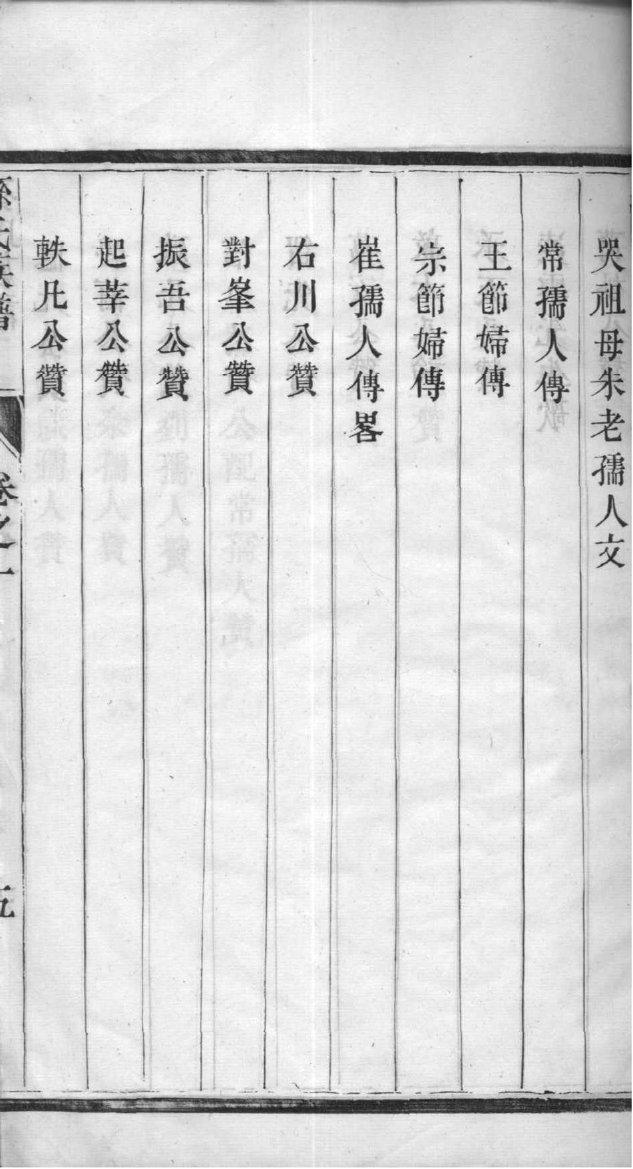 哭祖母朱老孺人文
常孺人傳
王節婦傳
宗節婦傳
崔孺人傳畧
右川公贊
對峯公贊
振吾公贊
起莘公贊
軼凡公贊
孫氏族譜
卷之一
五